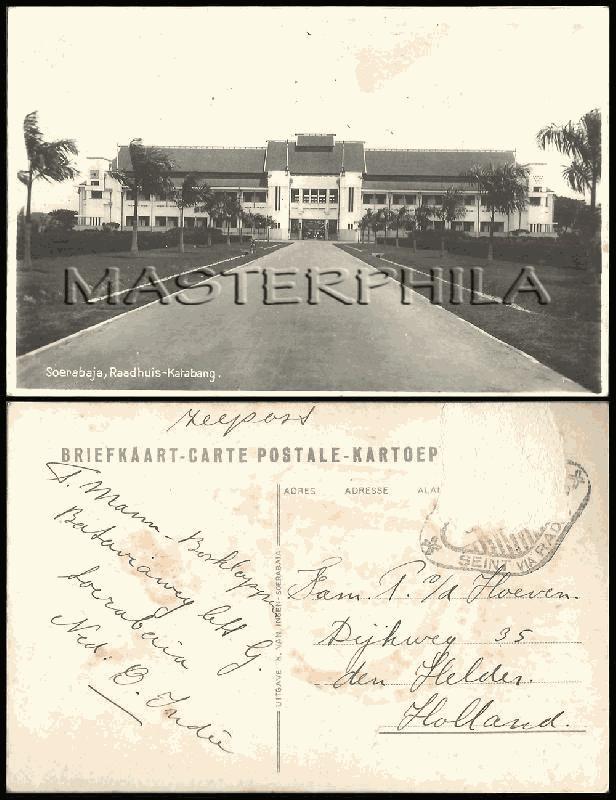 MASTERPHILA
Soerabaja, Raadhuis-Katabang.
Zeepost
BRIEFKAART-CARTE POSTALE-KARTOEP
ADRES ADRESSE ALA
SEINT VIA RAD
F. Mann-
Bataviaweg G.
Soerabaia
Ned. O. Indië
UITGAVE N. VAN INGEN-SOERABAIA
Fam. P. v/d Hoeven.
Dijkweg 35
den Helder.
Holland.